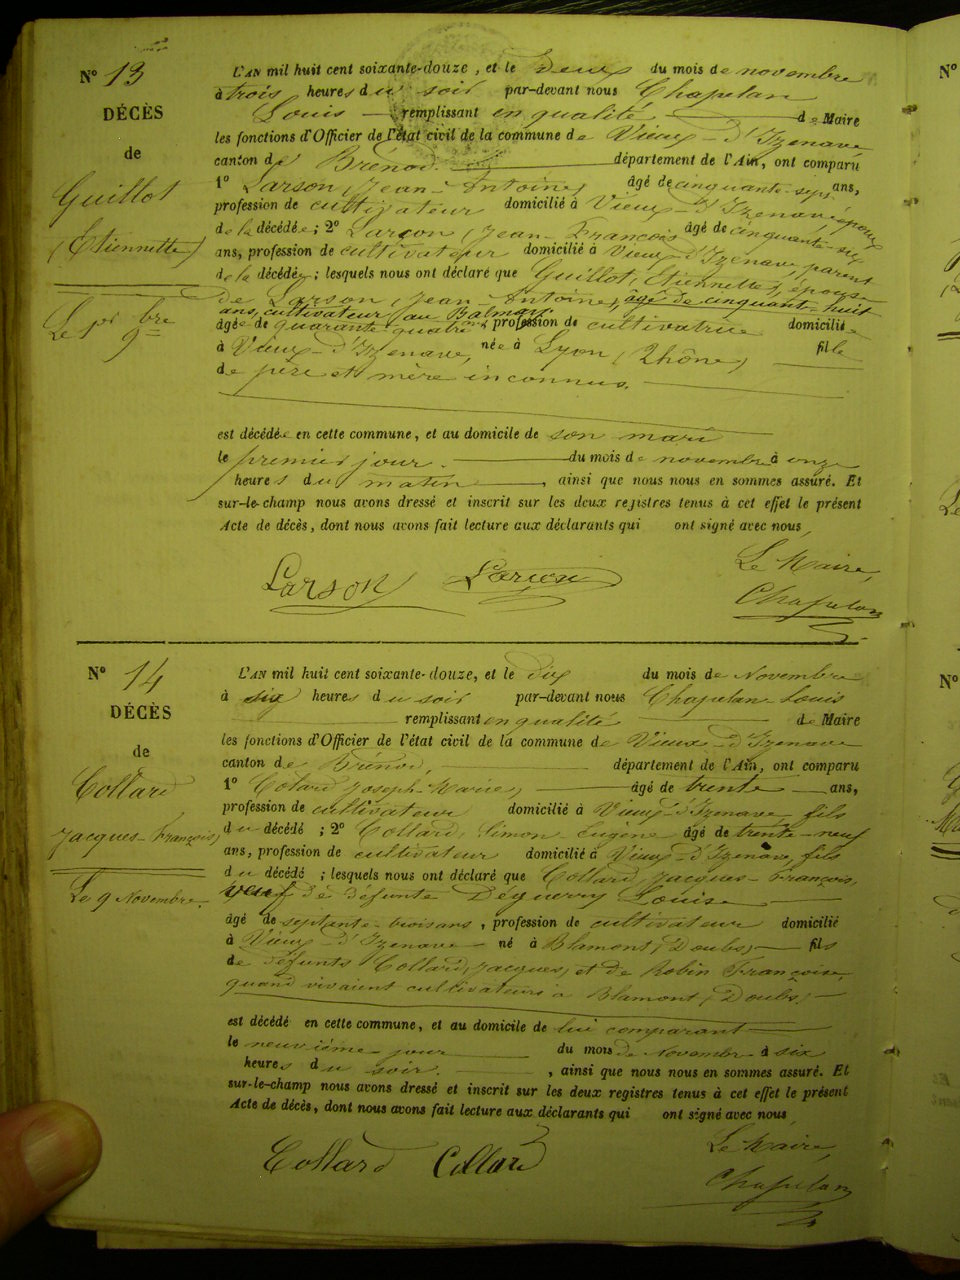 N° 13
DÉCÈS
de
Guillot
(Etiennette)
Le 1er 9bre
L'AN mil huit cent soixante-douze, et le deux du mois de novembre
à trois heures du soir par-devant nous Chapelan
Louis remplissant en qualité de Maire
les fonctions d'Officier de l'état civil de la commune de Vieux-d'Izenave
canton de Brénod. département de l'Ain, ont comparu
1° Larson, Jean-Antoine, âgé de cinquante-sept ans,
profession de cultivateur domicilié à Vieux-d'Izenave, époux
de la décédée; 2° Larçon, Jean-François âgé de cinquante-six
ans, profession de cultivateur domicilié à Vieux-d'Izenave, parent
de la décédée; lesquels nous ont déclaré que Guillot, Etiennette, épouse
de Larson, Jean-Antoine, âgé de cinquante-huit
ans, cultivateur au Balmay
âgée de quarante-quatre ans, profession de cultivatrice domiciliée
à Vieux-d'Izenave, née à Lyon (Rhône) fille
de père et mère inconnus.
est décédée en cette commune, et au domicile de son mari
le premier jour. du mois de novembre à onze
heures du matin, ainsi que nous nous en sommes assuré. Et
sur-le-champ nous avons dressé et inscrit sur les deux registres tenus à cet effet le présent
Acte de décès, dont nous avons fait lecture aux déclarants qui ont signé avec nous,
Le Maire,
Larson
Chapelan
N° 14
DÉCÈS
de
Collard
Jacques-François,
Le 9 Novembre.
L'AN mil huit cent soixante-douze, et le dix du mois de Novembre
à six heures du soir par-devant nous Chapelan Louis
remplissant en qualité de Maire
les fonctions d'Officier de l'état civil de la commune de Vieux-d'Izenave
canton de Brénod, département de l'Ain, ont comparu
1° Colard Joseph-Marie, âgé de trente ans,
profession de cultivateur domicilié à Vieux-d'Izenave, fils
du décédé; 2° Collard, Simon-Eugène âgé de trente-neuf
ans, profession de cultivateur domicilié à Vieux-d'Izenave, fils
du décédé; lesquels nous ont déclaré que Collard, Jacques-François,
veuf de défunte Déguerry Louise
âgé de septante-trois ans, profession de cultivateur domicilié
à Vieux-d'Izenave né à Blamont, Doubs, fils
de défunts Collard, Jacques, et de Robin Françoise,
quand vivaient cultivateurs à Blamont, Doubs,
est décédé en cette commune, et au domicile de lui comparant
le neuvième jour du mois de Novembre à six
heures du soir. , ainsi que nous nous en sommes assuré. Et
sur-le-champ nous avons dressé et inscrit sur les deux registres tenus à cet effet le présent
Acte de décès, dont nous avons fait lecture aux déclarants qui ont signé avec nous,
Le Maire,
Collard Collard
Chapelan
N°
N°